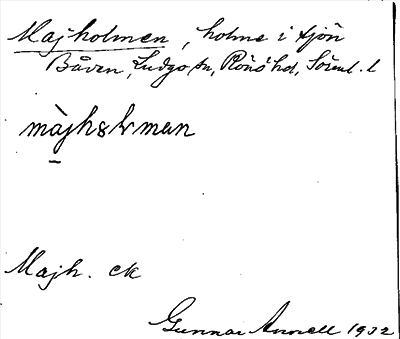 Majholmen, holme i sjön
Båven, Ludgo sn, Rönö hd, Söderml. l
Majh. ek
Gunnar Annell 1932